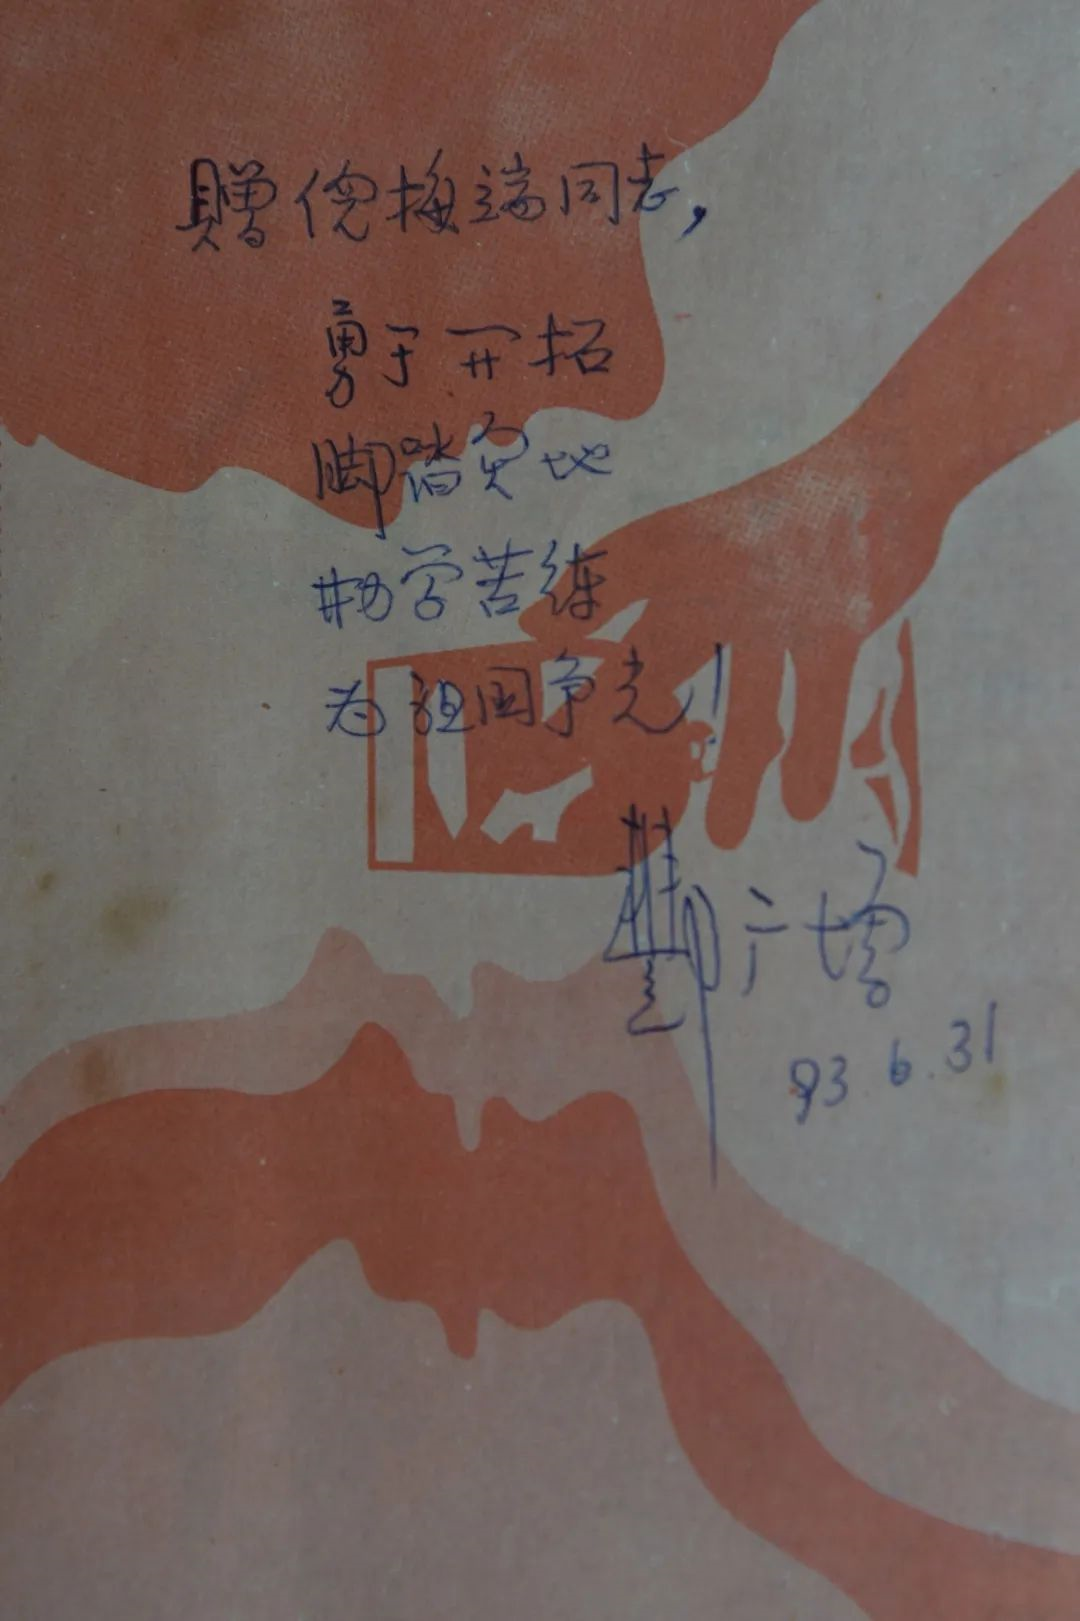 贈倪梅端同志,
勇于开拓
脚踏实地
勤学苦练
为祖国争光!
93.6.31